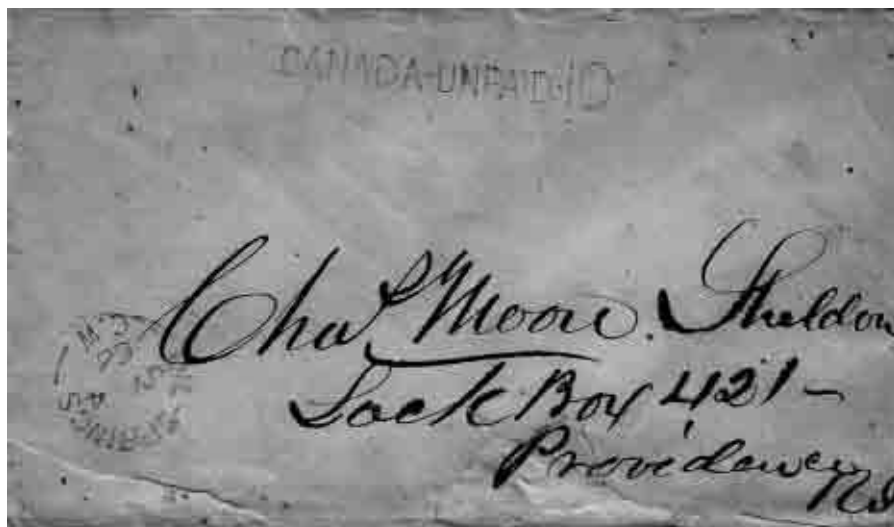 CANADA-UNPAID 10
Chas Moore Sheldon
Lock Box 421 -
Providence
R.I.